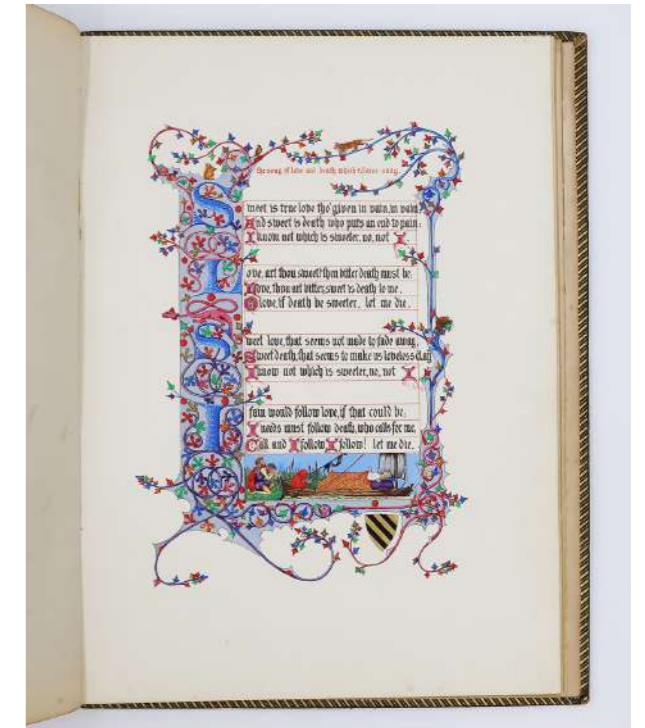 the song of love and death which Elaine sang.
Sweet is true love tho' given in vain, in vain,
And sweet is death who puts an end to pain:
I know not which is sweeter, no, not I.
Love, art thou sweet? then bitter death must be:
Love, thou art bitter, sweet is death to me.
O love, if death be sweeter, let me die.
Sweet love, that seems not made to fade away,
Sweet death, that seems to make us loveless clay
I know not which is sweeter, no, not I.
I fain would follow love, if that could be:
I needs must follow death, who calls for me,
Call and I follow I follow! let me die.